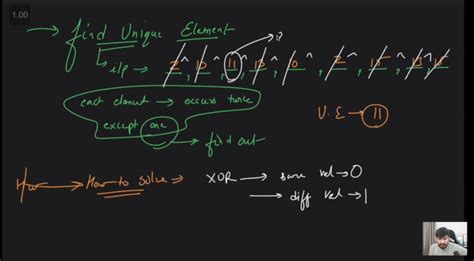 1.00
→ find Unique Element
↳ i/p → 2 ^, 10 ^, 11 ^, 10 ^, 0 ^, 2 ^,
each element → occurs twice
except one
→ find out
U.E → 11
H/w → How to solve ⇒ XOR → same val → 0
→ diff val → 1